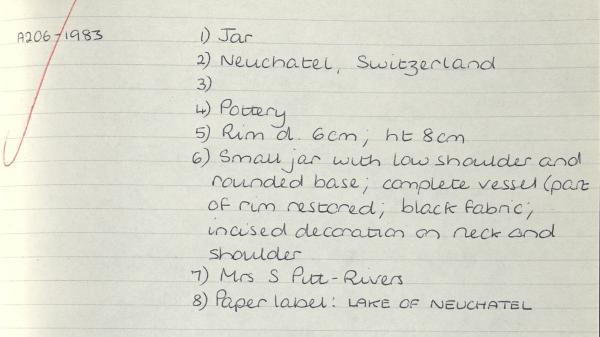 A206-1983 1) Jar
2) Neuchatel, Switzerland
3)
4) Pottery
5) Rim d. 6cm; ht 8cm
6) Small jar with low shoulder and
rounded base; complete vessel (part
of rim restored; black fabric;
incised decoration on neck and
shoulder
7) Mrs S Pitt-Rivers
8) Paper label: LAKE OF NEUCHATEL